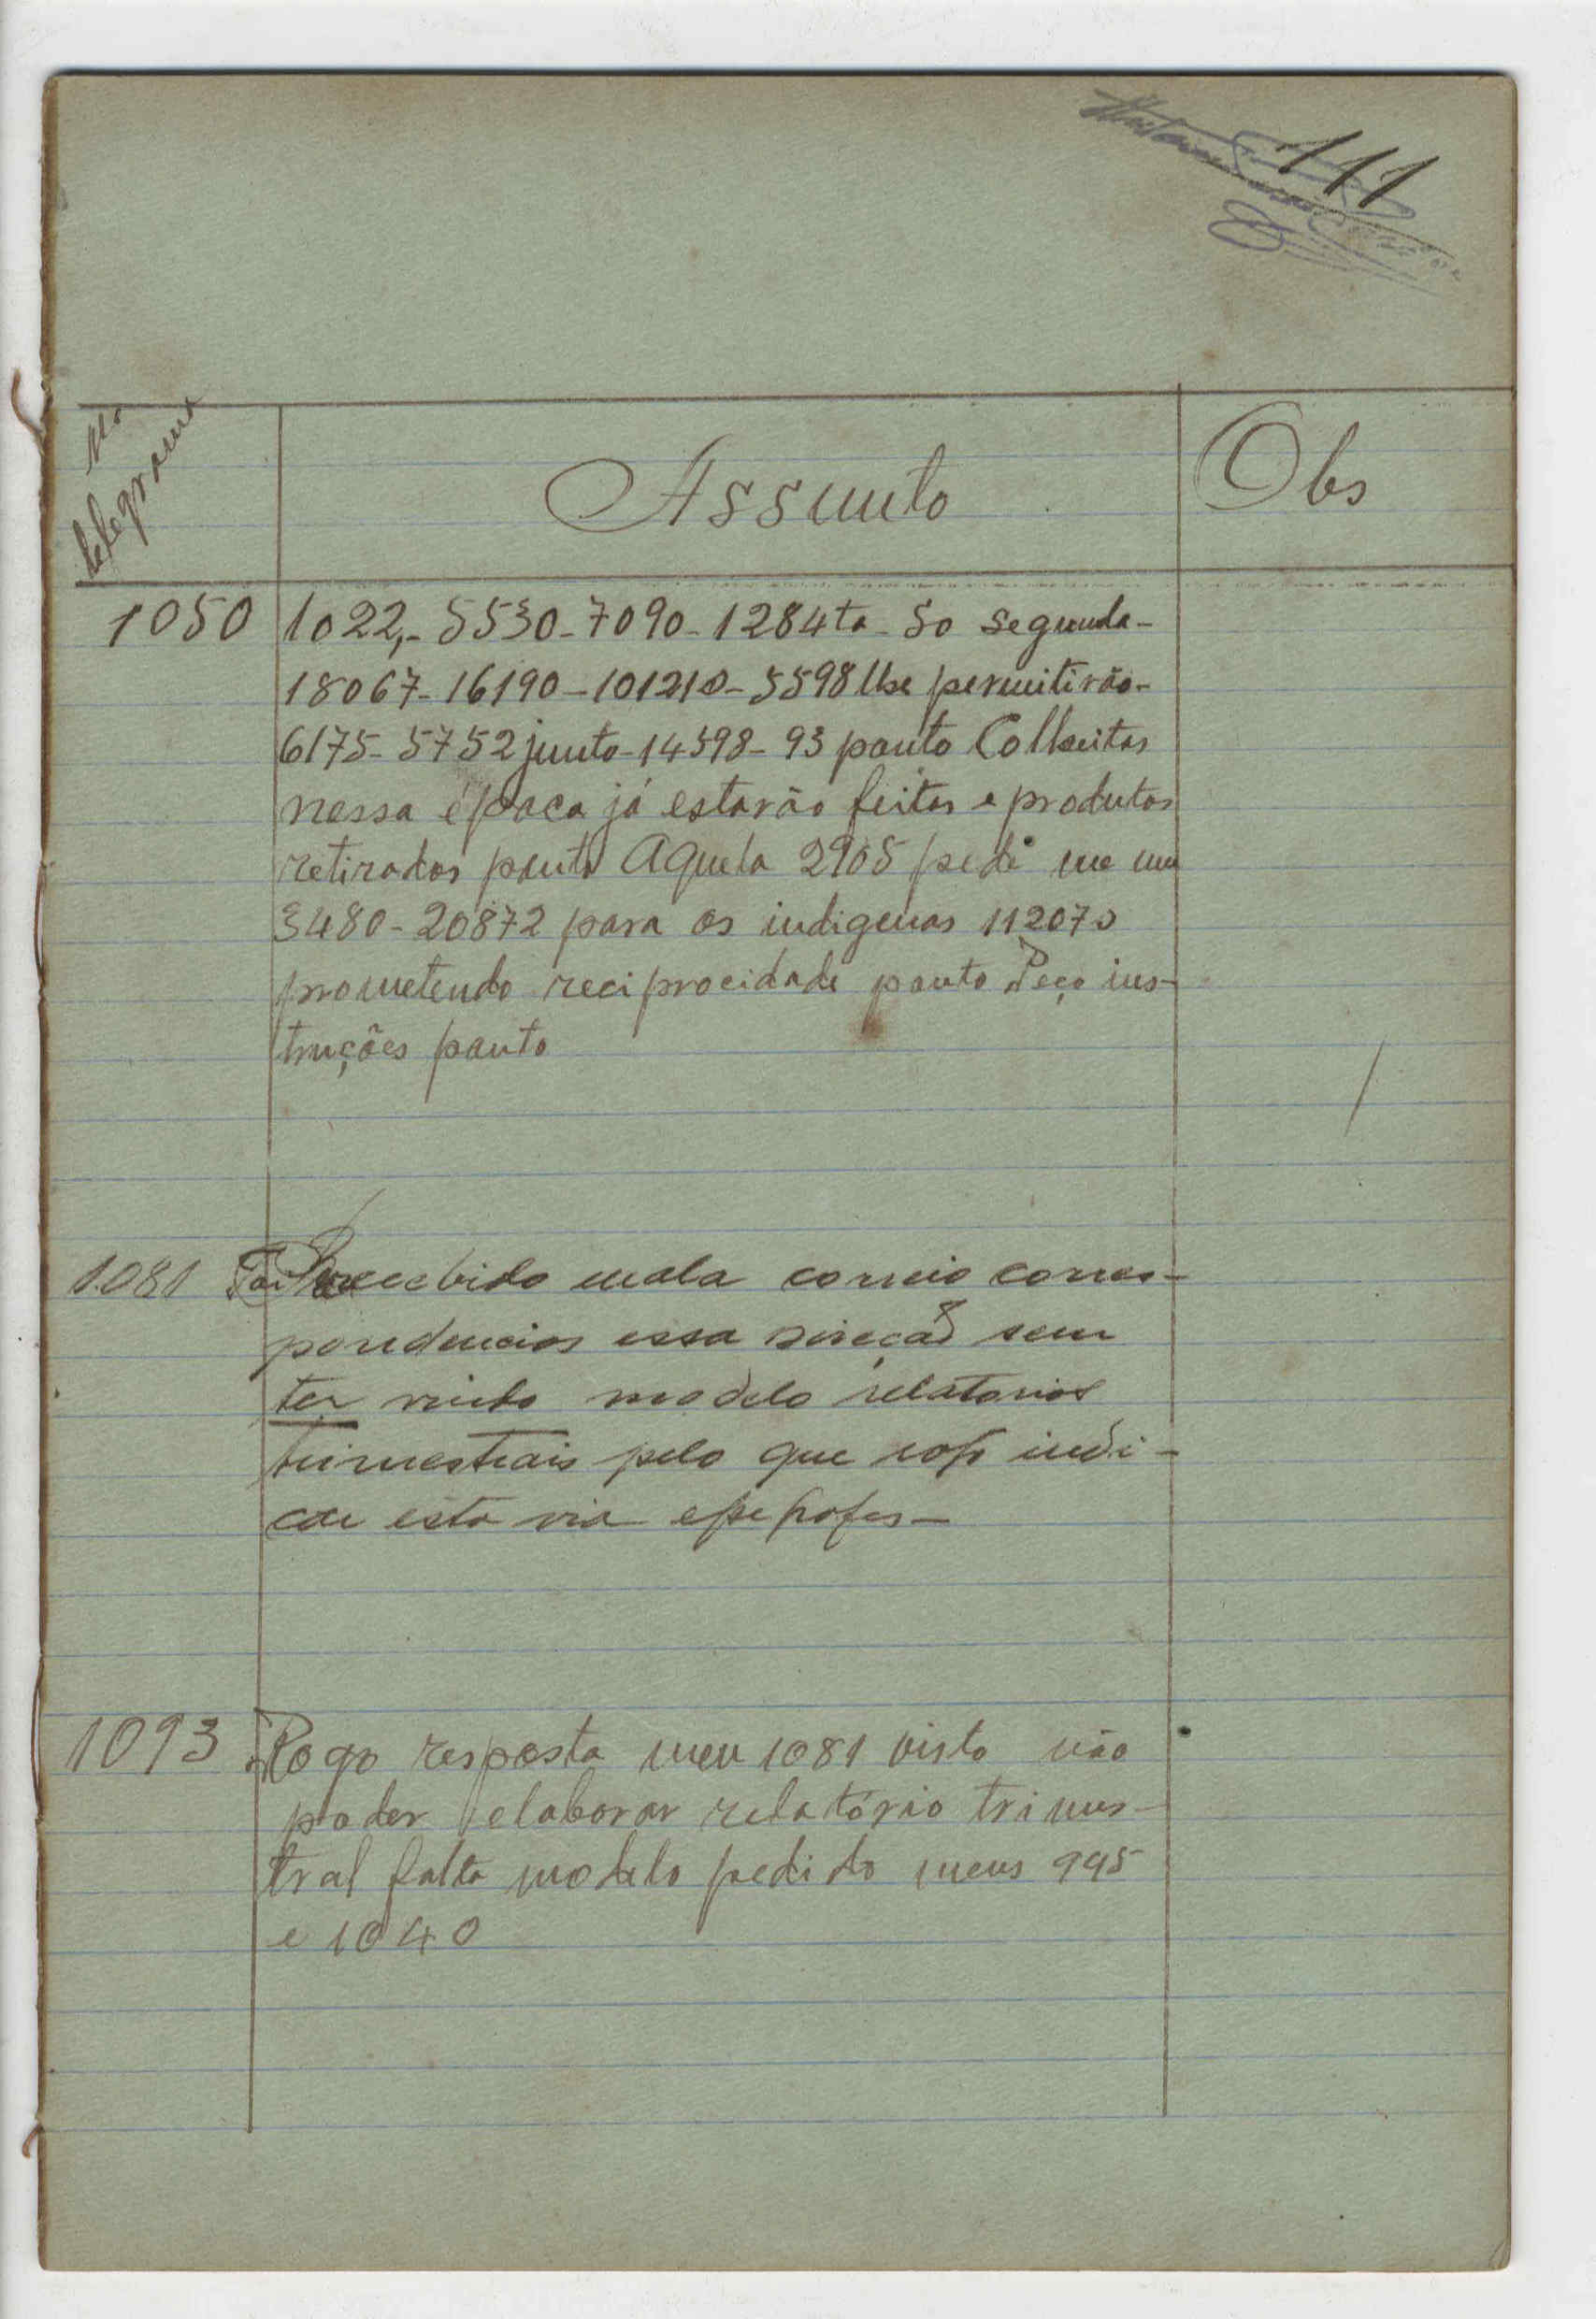 111
No
telegrama
Assunto
Obs
1050 1022,- 5530- 7090- 1284ta- So segunda-
18067- 16190- 101210- 5598 lhe permitirão-
6175- 5752 junto- 14598- 93 ponto Colheitas
nessa época já estarão feitas e produtos
retirados ponto Aquela 2905 pede me um
3480- 20872 para os indigenas 112070
prometendo reciprocidade ponto Peço ins-
truções ponto
1081 Foi recebido mala correio corres-
pondencias essa direcção sem
ter vindo modelo relatorios
trimestrais pelo que indi-
car esta via
1093 Rogo resposta meu 1081 visto não
poder elaborar relatório trimes-
tral falta modelo pedido meus 995
e 1040